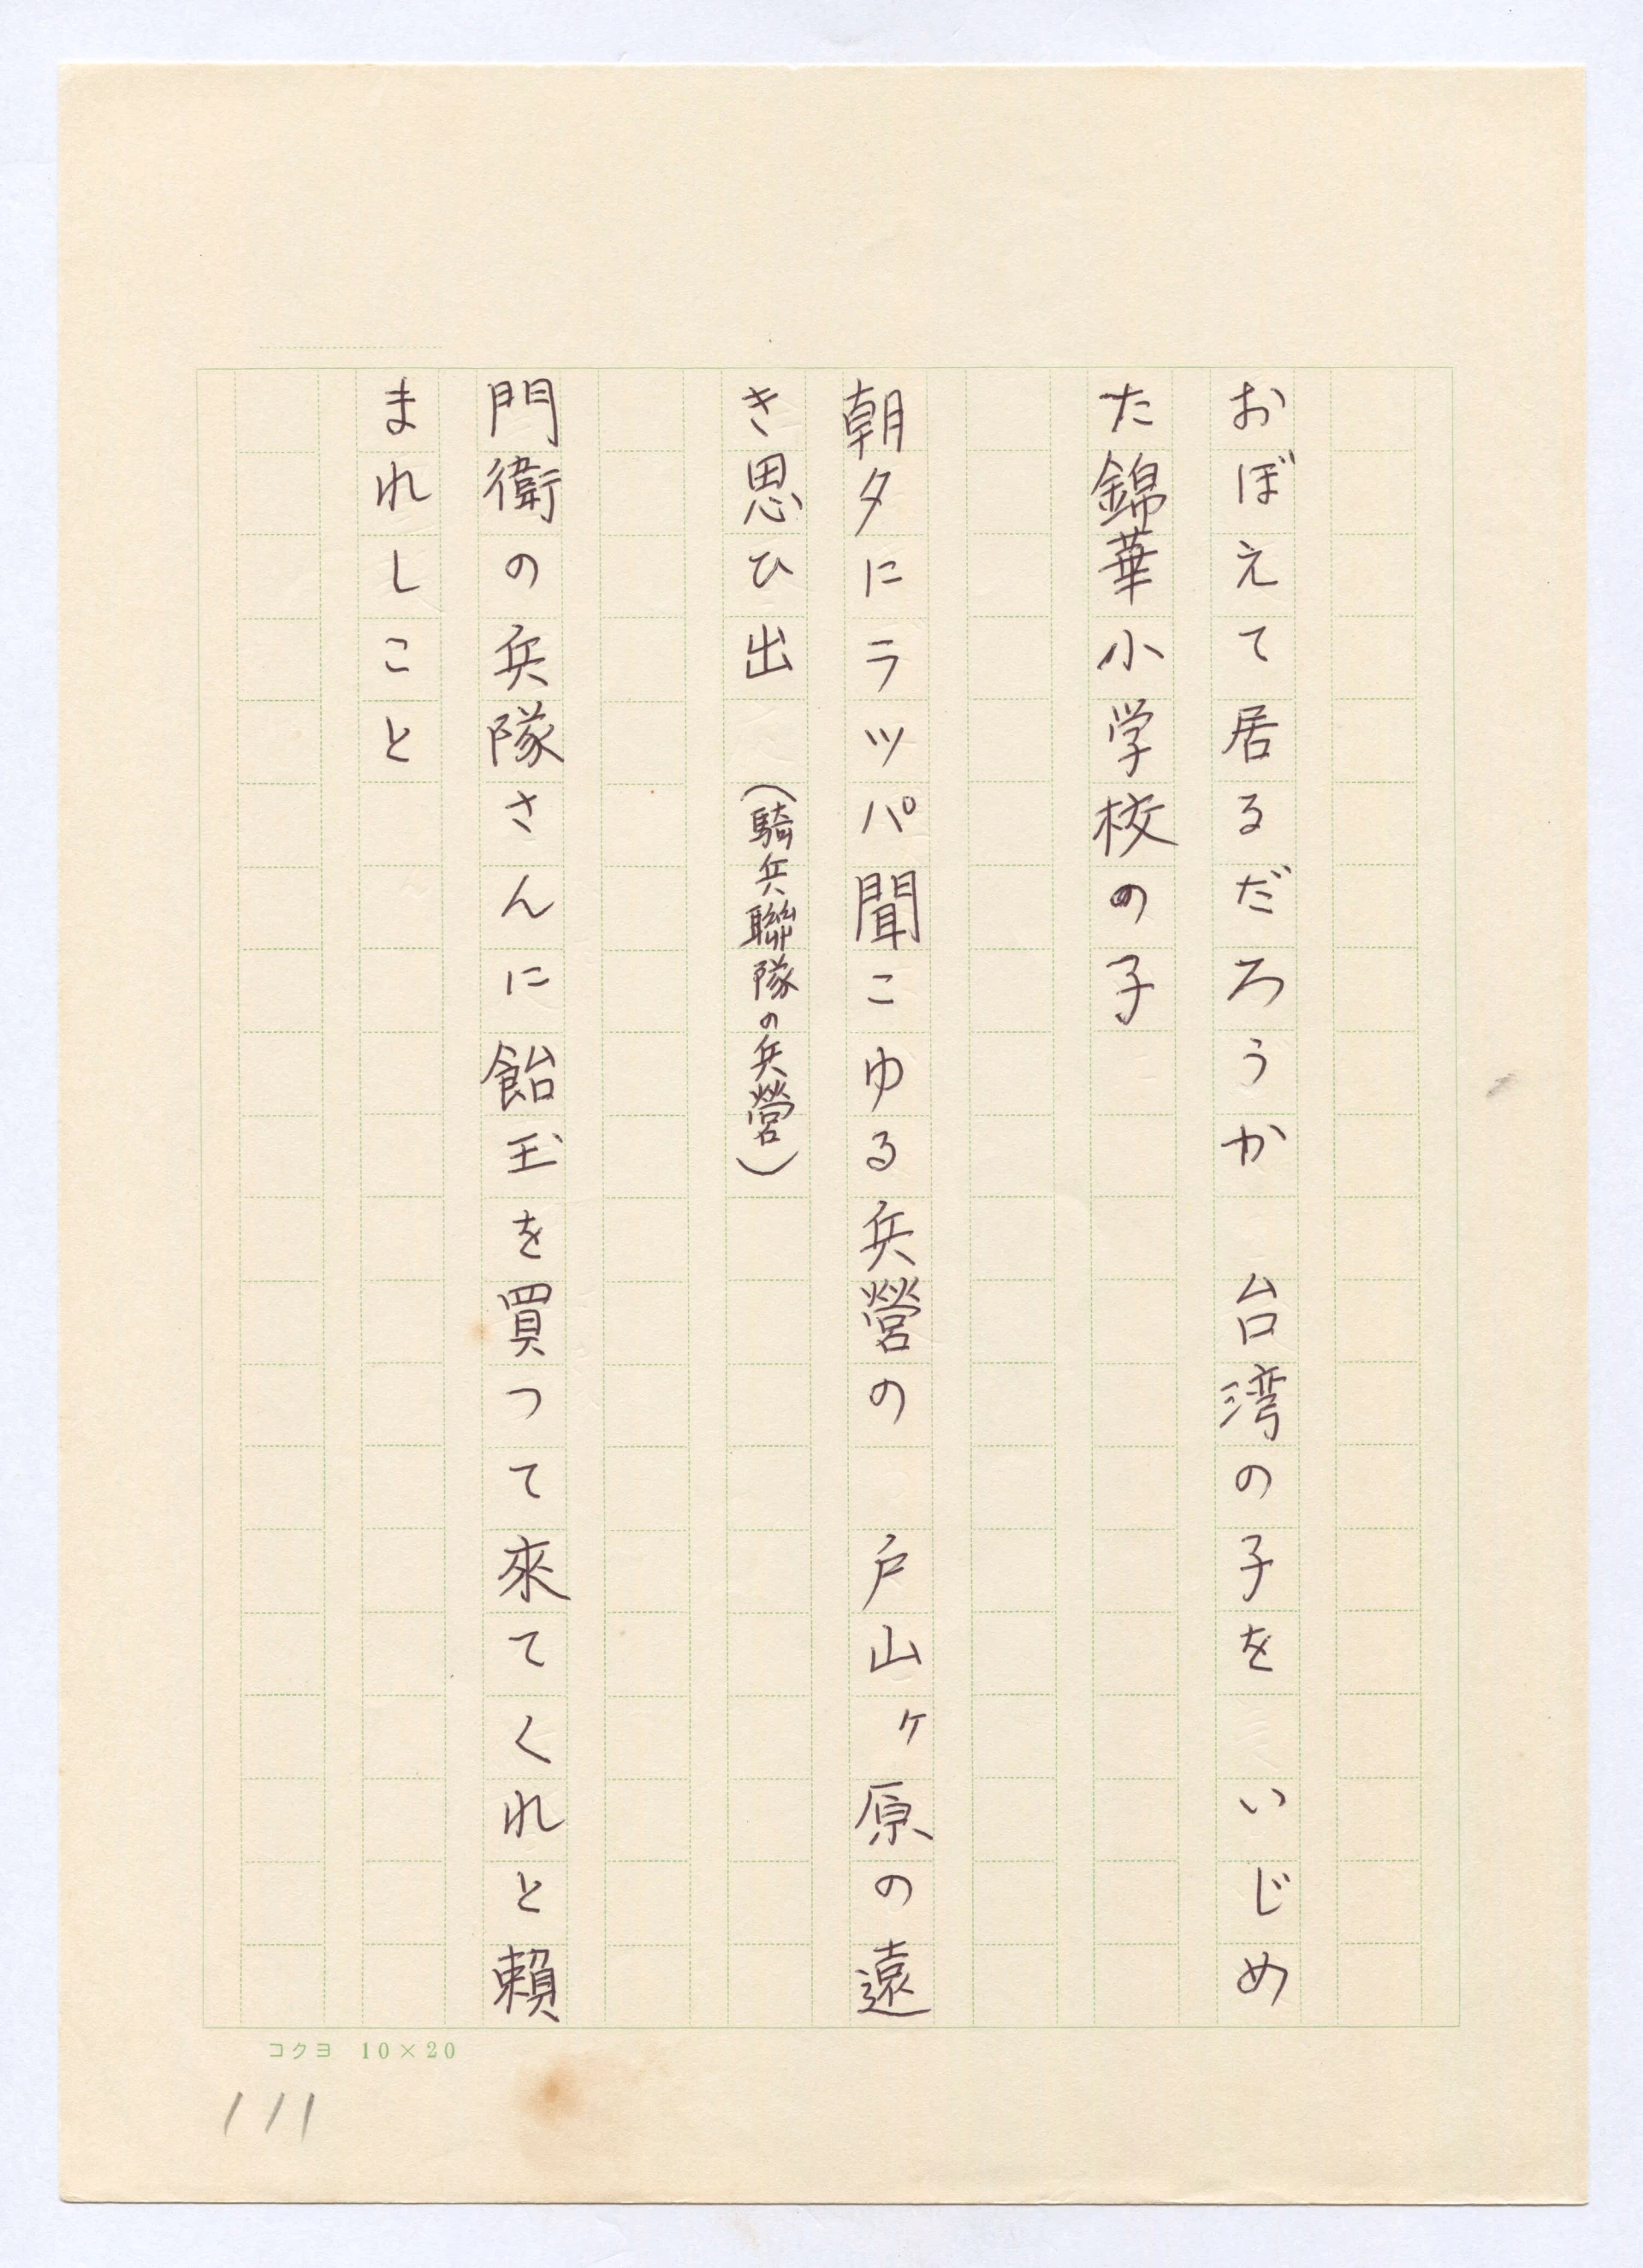 おぼえて居るだろうか　台湾の子を　いじめ
た錦華小学校の子
朝夕にラッパ聞こゆる兵營の　戸山ヶ原の遠
き思ひ出　（騎兵聯隊の兵營）
門衛の兵隊さんに飴玉を買つて來てくれと賴
まれしこと
コクヨ　10×20
111